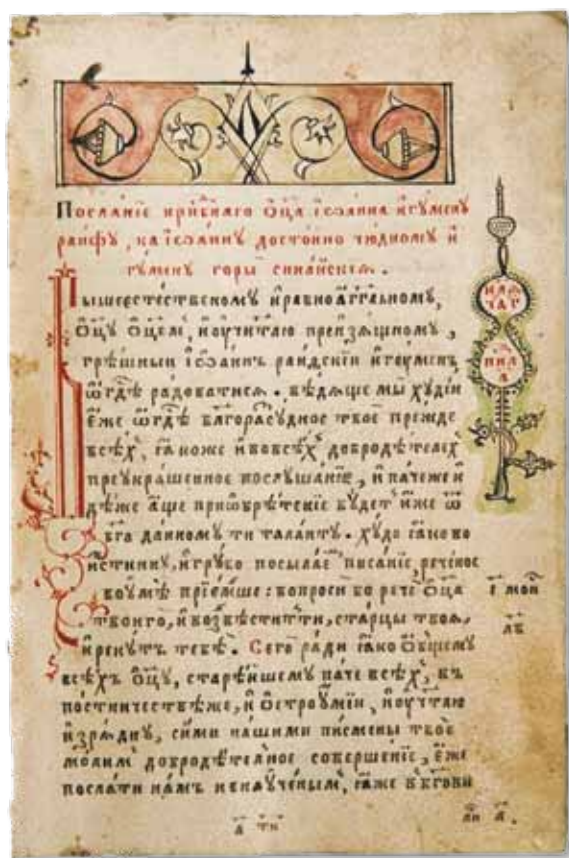 Посланїе прпⷣбнаго ѻ҆ц҃а і҆ѡа́нна и҆гꙋ́менꙋ
раи́фꙋ, ка і҆ѡа́ннꙋ досто́ино чю́дномꙋ и҆
гꙋ́менꙋ горы̀ сина́йскїѧ.
Вышеесте́ственомꙋ и҆ равноа́гг҃льномꙋ,
ѻ҆ц҃ꙋ ѻ҆ц҃е́мъ, и҆ оу҆чи́телю преизѧ́щномꙋ,
грѣ́шныи і҆ѡа́ннъ раи́дскїи и҆гꙋ́менъ
ѡ҆ гдⷭ҇ѣ ра́доватисѧ. вѣ́дѧще мы̀ хꙋді́и
е҆́же ѡ҆ гдⷭ҇ѣ благорасꙋ́дное твоѐ пре́жде
всѣ́хъ, ꙗ҆́коже и҆ во всѣ́хъ добродѣ́телех
преꙋкра́шенное послꙋша́нїе, и҆ па́чеже и҆
дѣ́же а҆́ще приѡбрѣ́тенїе бꙋ́детъ и҆́же ѿ
бг҃а да́нномꙋ ти тала́нтꙋ. хꙋ́до ꙗ҆́ково
и҆́стиннꙋ, и҆ грꙋ́бо посыла́е писа́нїе, рече́ное
воꙋмѣ̀ прїе́мше: вопросѝ бо речѐ ѻ҆ц҃а
твоего̀, и҆ возвѣсти́тъ ти, ста́рцы твоѧ̀,
и҆ рекꙋ́тъ тебѣ̀. Сего̀ ра́ди ꙗ҆́ко ѻ҆́бщемꙋ
всѣ́хъ ѻ҆ц҃ꙋ, старѣ́йшемꙋ па́че всѣ́хъ, въ
по́стничествѣже, и҆ ѻ҆строꙋ́мїи, и҆ оу҆чи́телю
и҆зрѧ́днꙋ, си́ми на́шими пи́смены твоѐ
мо́лимъ добродѣ́телное соверше́нїе, е҆́же
посла́ти на́мъ ненаꙋче́нымъ, ꙗ҆́же въ бг҃ови